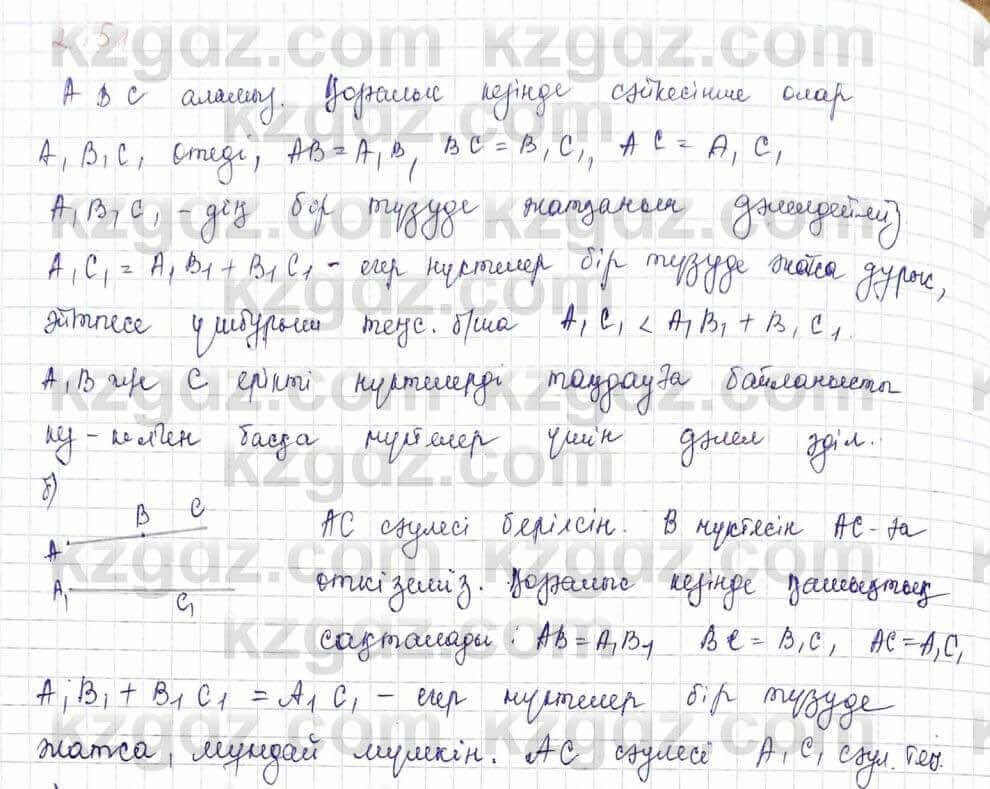 2.51
А В С аламыз. Қозғалыс кезінде сәйкесінше олар
A₁ B₁ C₁ өтеді, AB = A₁B₁ BC = B₁C₁, AC = A₁C₁
A₁ B₁ C₁ - дің бір түзуде жатқанын дәлелдейміз
A₁C₁ = A₁B₁ + B₁C₁ - егер нүктелер бір түзуде жатса дұрыс,
әйтпесе үшбұрыш теңс. б/ша A₁C₁ < A₁B₁ + B₁C₁.
А, В және С ерікті нүктелерді таңдауға байланысты
кез - келген басқа нүктелер үшін дәлел әділ.
б)
A B C
A₁ C₁
АС сәулесі берілсін. В нүктесін АС-ға
өткіземіз. Қозғалыс кезінде қашықтық
сақталады: AB = A₁B₁ BC = B₁C₁ AC = A₁C₁
A₁B₁ + B₁C₁ = A₁C₁ - егер нүктелер бір түзуде
жатса, мұндай мүмкін. АС сәулесі A₁C₁ сәул. тең.
kzgdz.com